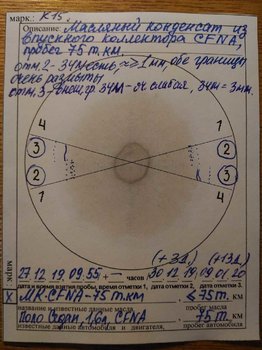 марк.: К15
Описание Масляный конденсат из
впускного коллектора CFNA,
пробег 75 т.км.
отм.2- ЗЧМ есть, ≈ > 1 мм, обе границы
очень размыты
отм.3- внешгр. ЗЧМ - оч. слабая, ЗЧМ = 3мм.
4 1
3 2
2 3
1 4
(+3Д) (+13Д)
марк:
27 12 19 09 55 +— часов 30 12 19 09 01 20
дата и время взятия пробы, время отметки 1, дата отметки 2, дата отметки 3.
X МК-CFNA-75 т.км , ≤75т. км
название и известные данные масла пробег масла
Поло Седан, 1,6л, CFNA , 75т. км
известные данные автомобиля и двигателя, пробег автомобиля